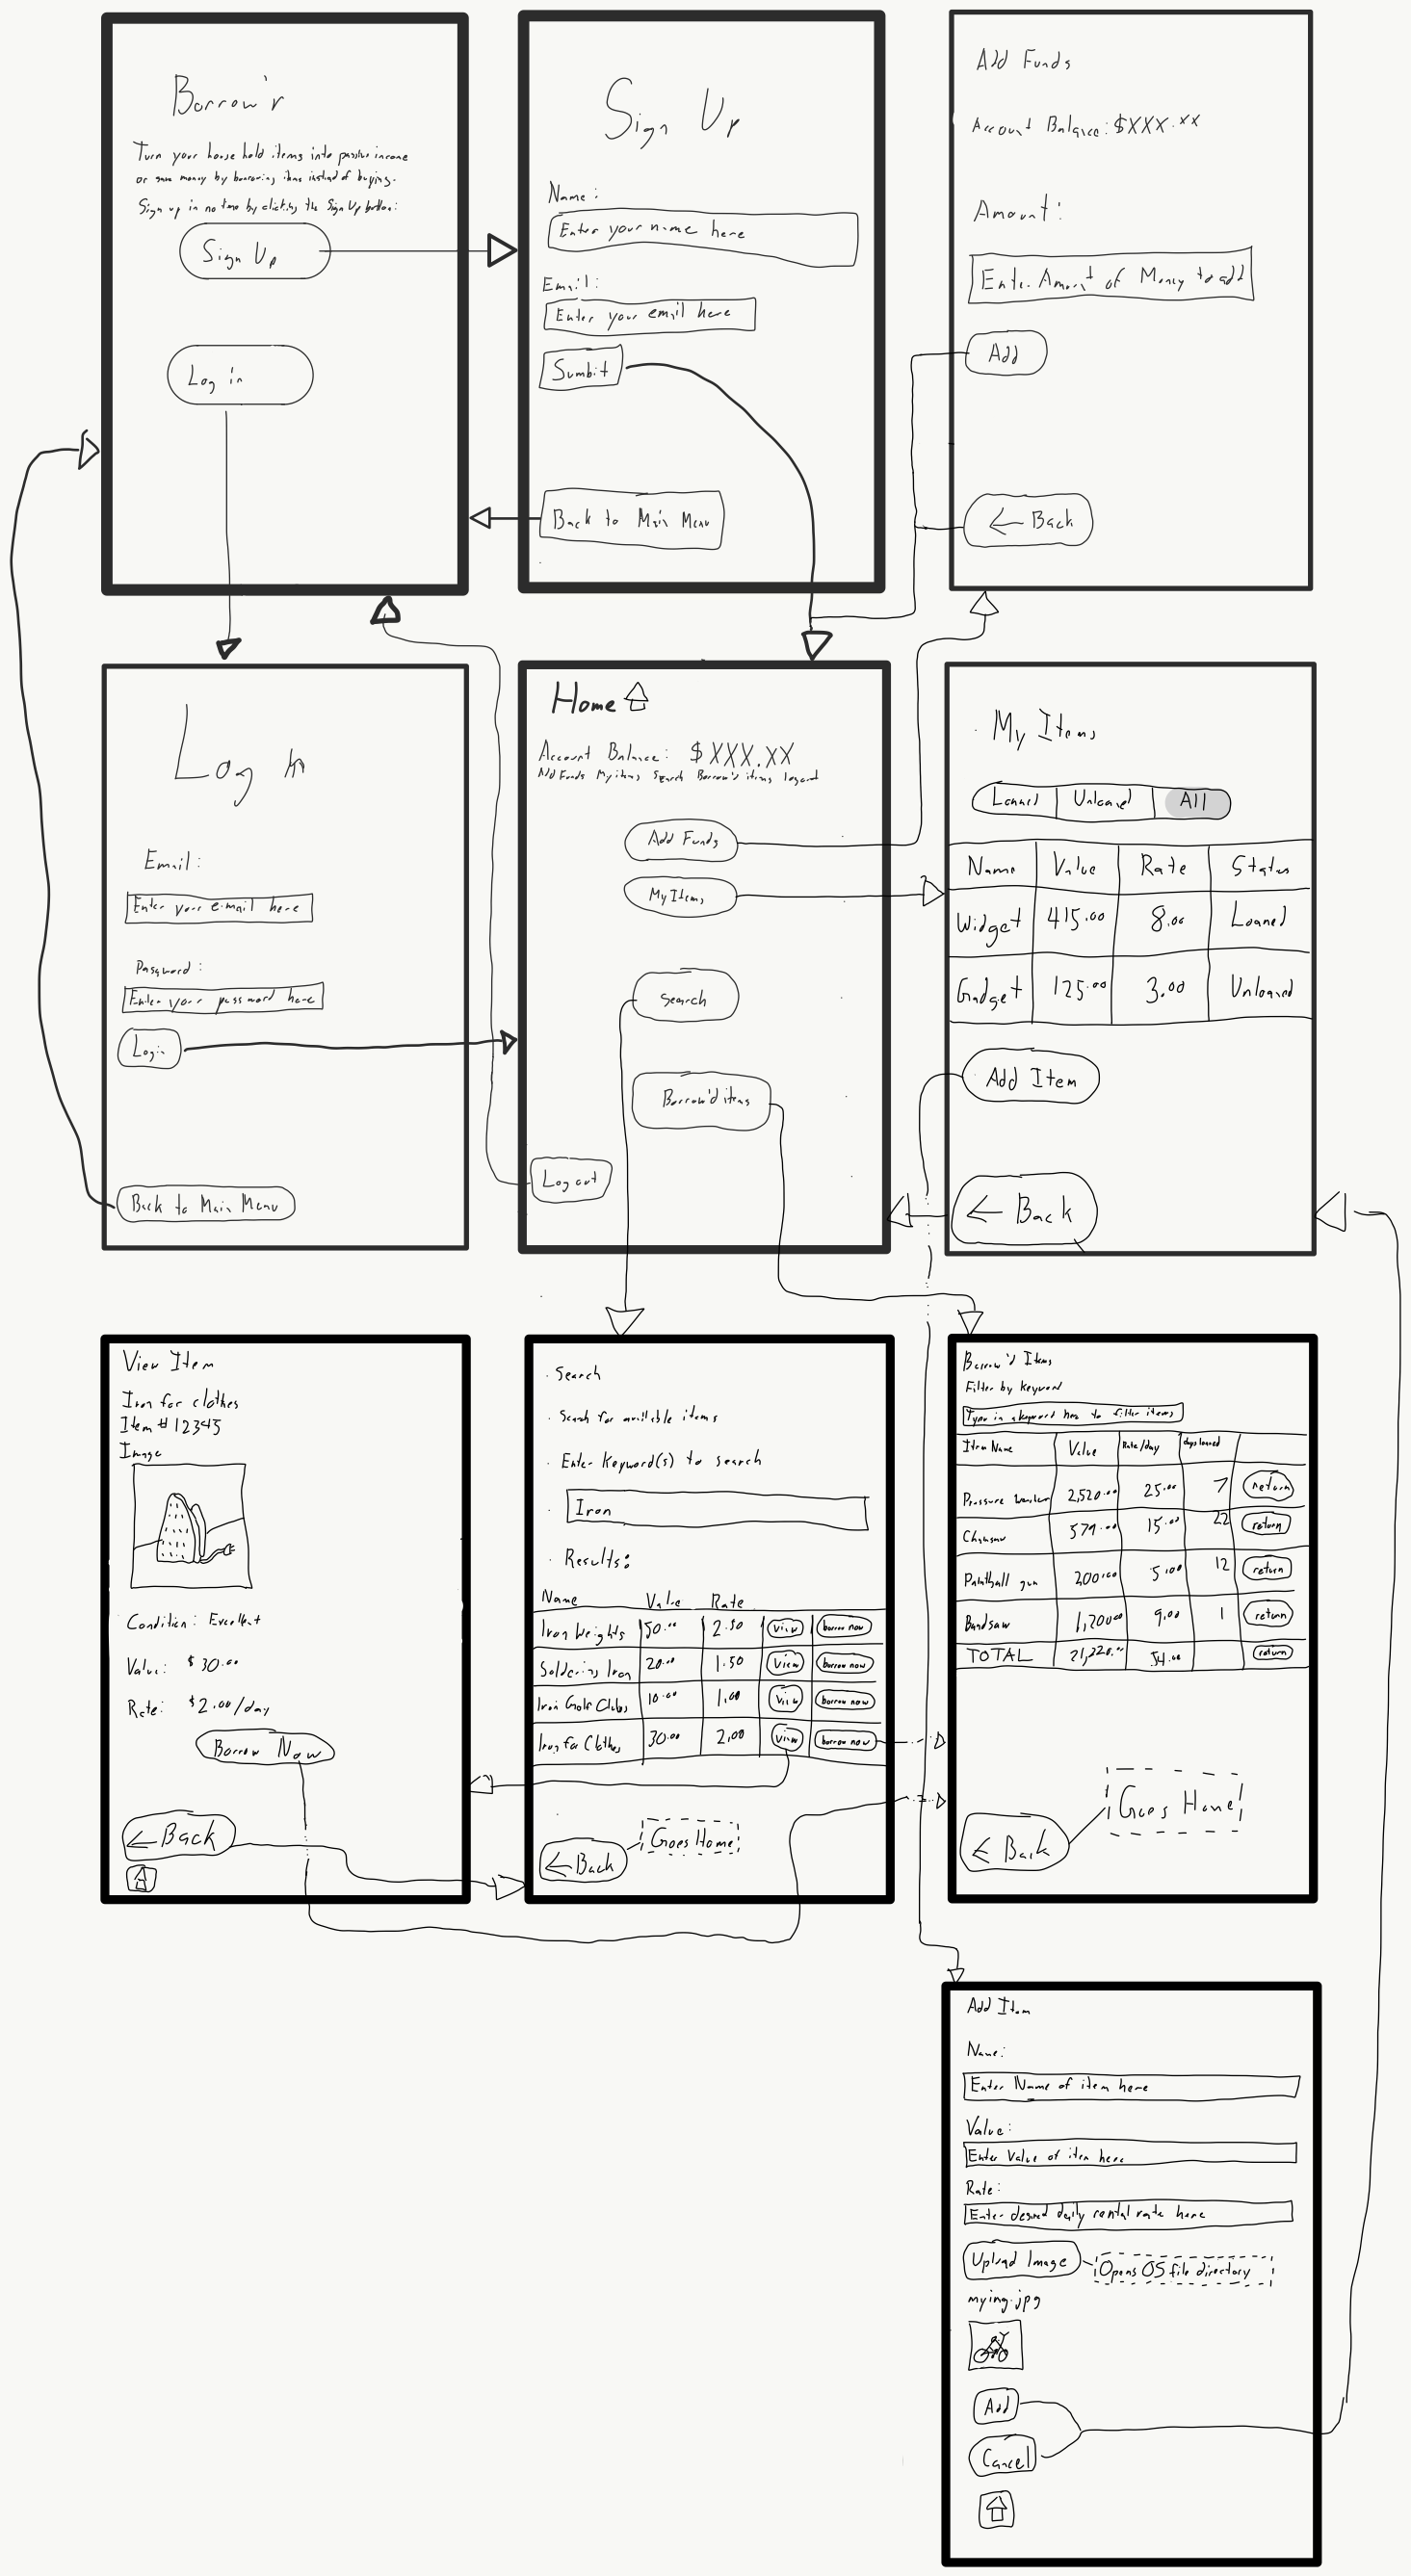 Borrow'r
Turn your house hold items into passive income
or save money by borrowing items instead of buying.
Sign up in no time by clicking the Sign Up button:
Sign Up
Log in
Sign Up
Name:
Enter your name here
Email:
Enter your email here
Sumbit
Back to Main Menu
Add Funds
Account Balance: $XXX.XX
Amount:
Enter Amount of Money to add
Add
← Back
Log In
Email:
Enter your email here
Password:
Enter your password here
Login
Back to Main Menu
Home
Account Balance: $XXX.XX
Add Funds My items Search Borrow'd items logout
Add Funds
My Items
Search
Borrow'd items
Log out
My Items
Loaned Unloaned All
Name Value Rate Status
Widget 415.00 8.00 Loaned
Gadget 125.00 3.00 Unloaned
Add Item
← Back
View Item
Iron for clothes
Item # 12345
Image
Condition: Excellent
Value: $30.00
Rate: $2.00/day
Borrow Now
← Back
Search
Search for available items
Enter Keyword(s) to search
Iron
Results:
Name Value Rate
Iron Weights 50.00 2.50 view borrow now
Soldering Iron 20.00 1.50 view borrow now
Iron Golf Clubs 10.00 1.00 view borrow now
Iron for Clothes 30.00 2.00 view borrow now
← Back
Goes Home
Borrow'd Items
Filter by keyword
Type in a keyword here to filter items
Item Name Value Rate/day days loaned
Pressure washer 2,520.00 25.00 7 return
Chainsaw 579.00 15.00 22 return
Paintball gun 200.00 5.00 12 return
Bandsaw 1,200.00 9.00 1 return
TOTAL 21,220.00 54.00 return
Goes Home
← Back
Add Item
Name:
Enter Name of item here
Value:
Enter Value of item here
Rate:
Enter desired daily rental rate here
Upload Image
Opens OS file directory
myimg.jpg
Add
Cancel